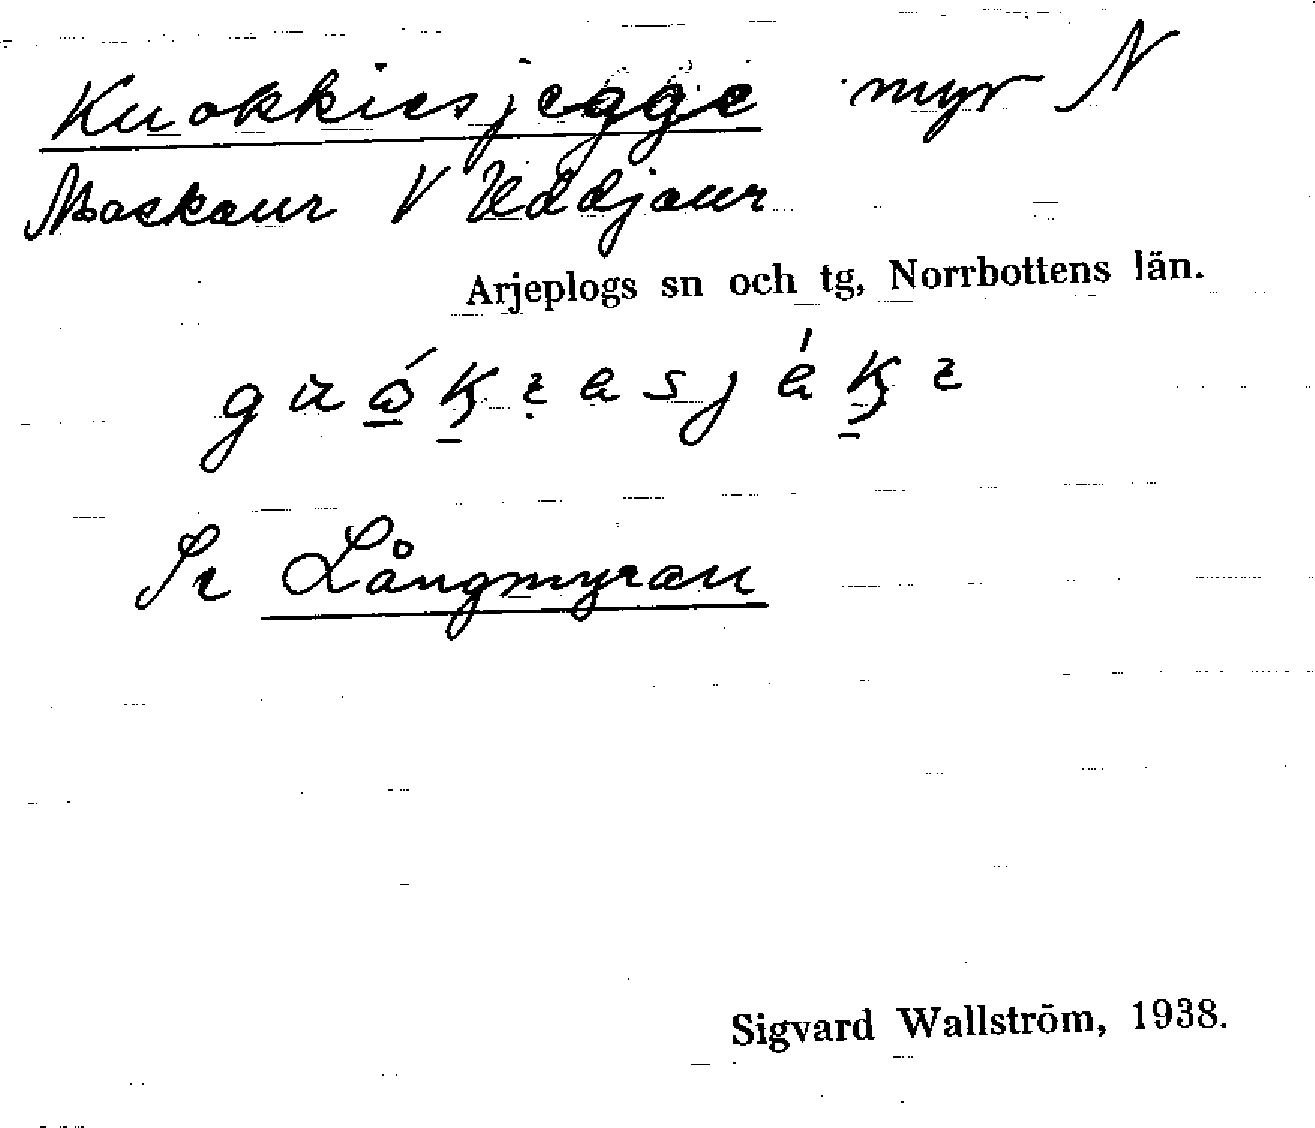 Kuokkiesjegge myr N
Maskaur V Uddjaur
Arjeplogs sn och tg, Norrbottens län.
Sv Långmyran
Sigvard Wallström, 1938.